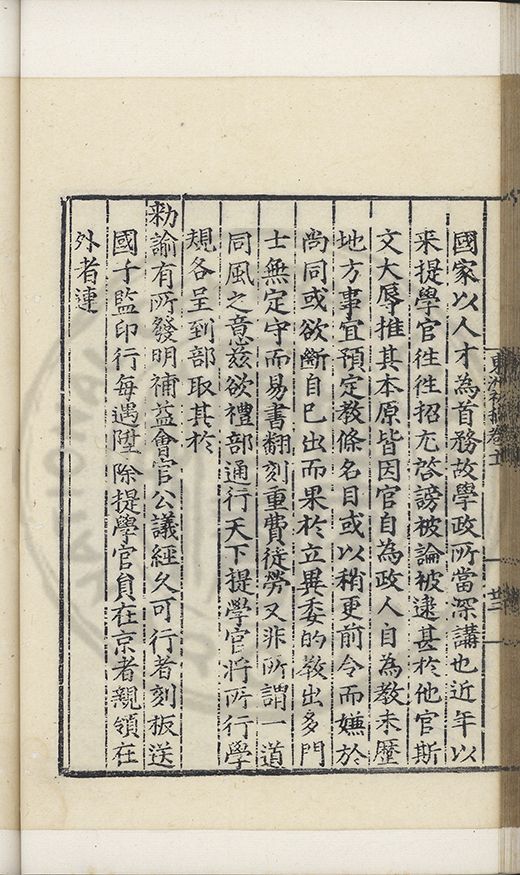 國家以人才為首務故學政所當深講也近年以
来提學官徃徃招尤啓謗被論被逮甚於他官斯
文大辱推其本原皆因官自為政人自為教未歷
地方事宜預定教條名目或以稍更前令而嫌於
尚同或欲斷自已出而果於立異委的教出多門
士無定守而易書翻刻重費徒勞又非所謂一道
同風之意兹欲禮部通行天下提學官将所行學
規各呈到部取其於
勑諭有所發明補益會官公議經久可行者刻板送
國子監印行每遇陞除提學官員在京者親領在
外者連